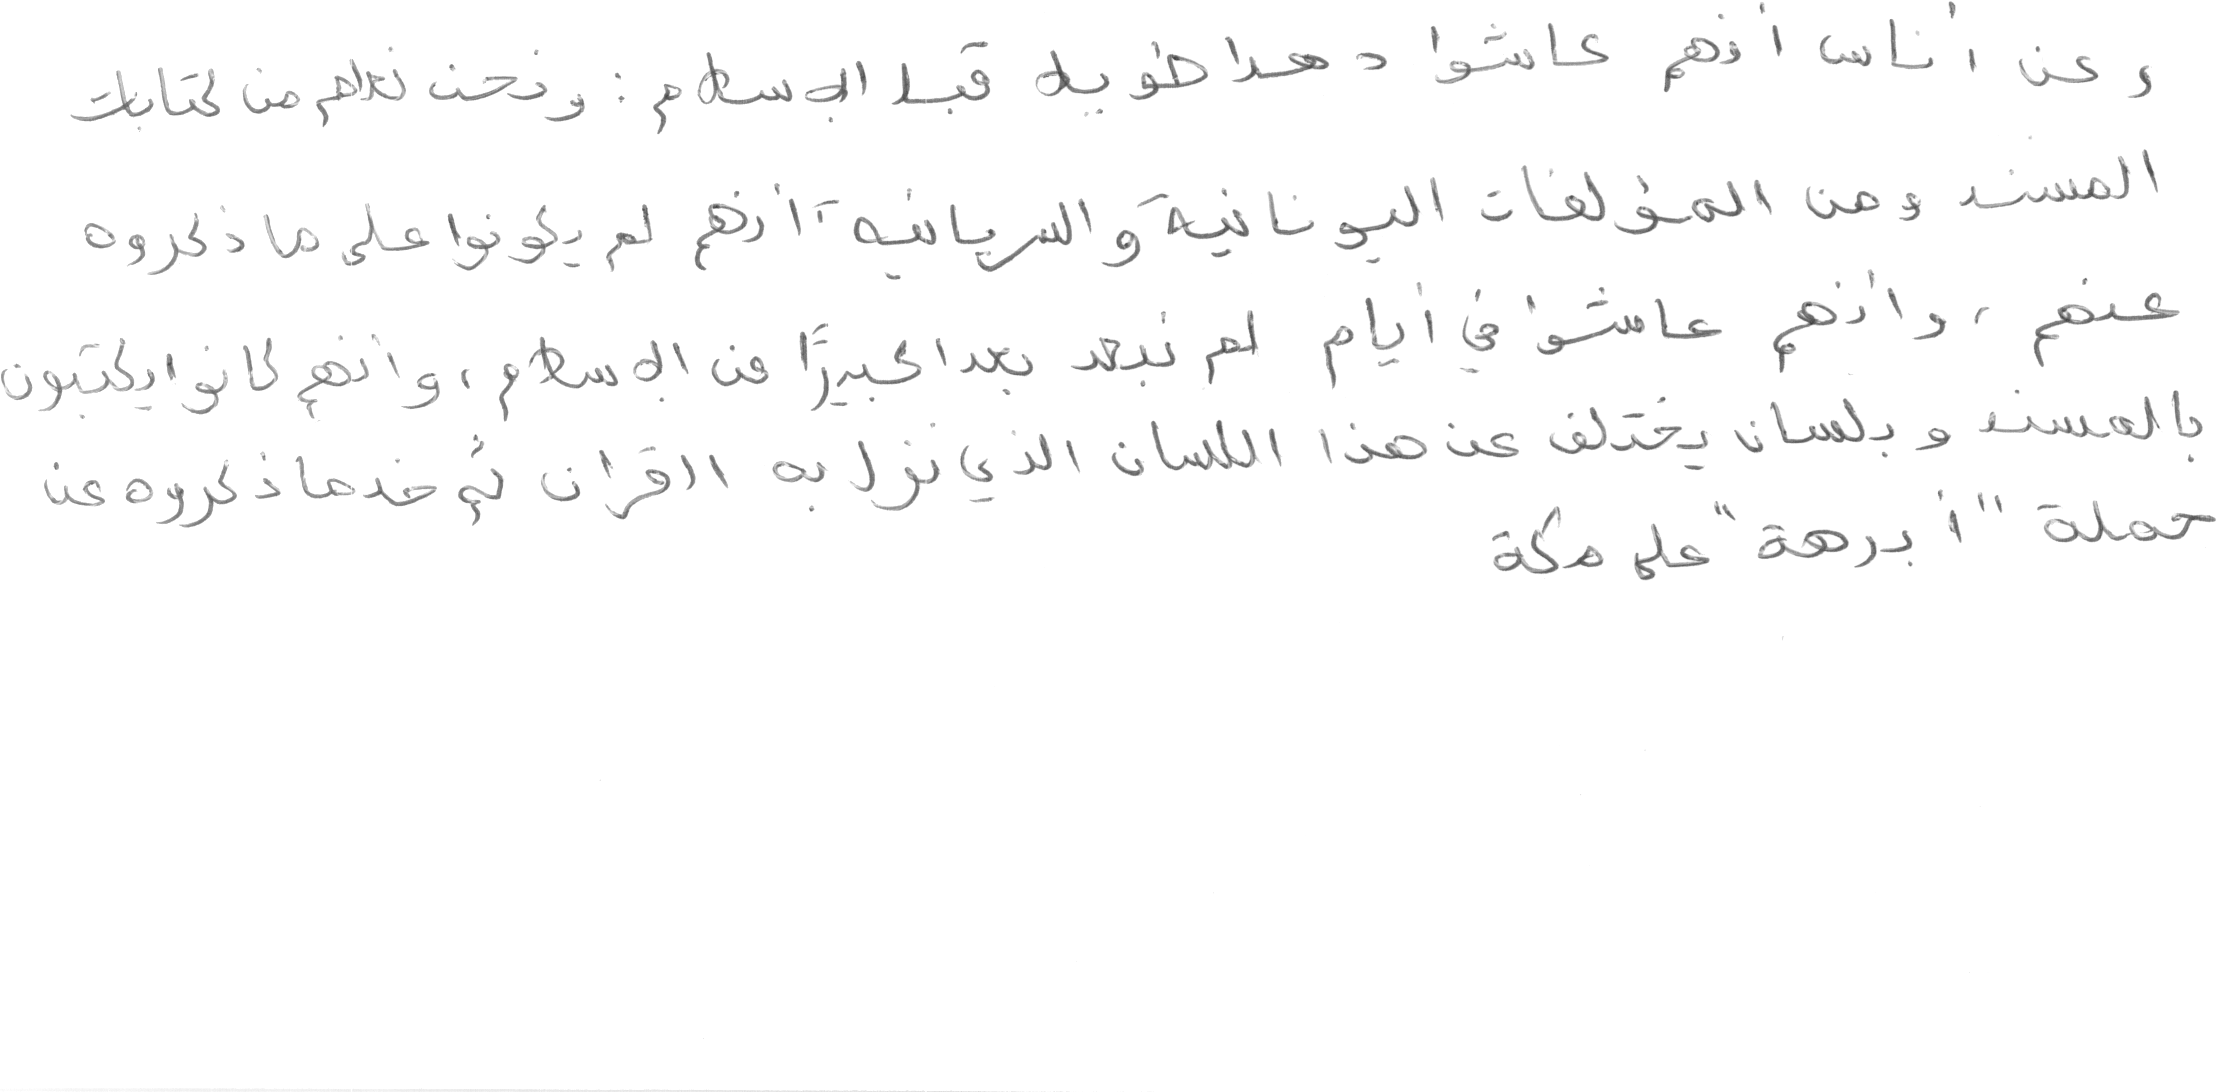 وعن أناس أنهم عاشوا دهرا طويلا قبل الإسلام : ونحن نعلم من كتابات
المسند ومن المؤلفات اليونانية والسريانية أنهم لم يكونوا على ما ذكروه
عنهم ، وأنهم عاشوا في أيام لم تبعد بعدا كبيرًا من الإسلام ، وأنهم كانوا يكتبون
بالمسند وبلسان يختلف عن هذا اللسان الذي نزل به القران ثم خد ما ذكروه عن
حملة "أبرهة" على مكة